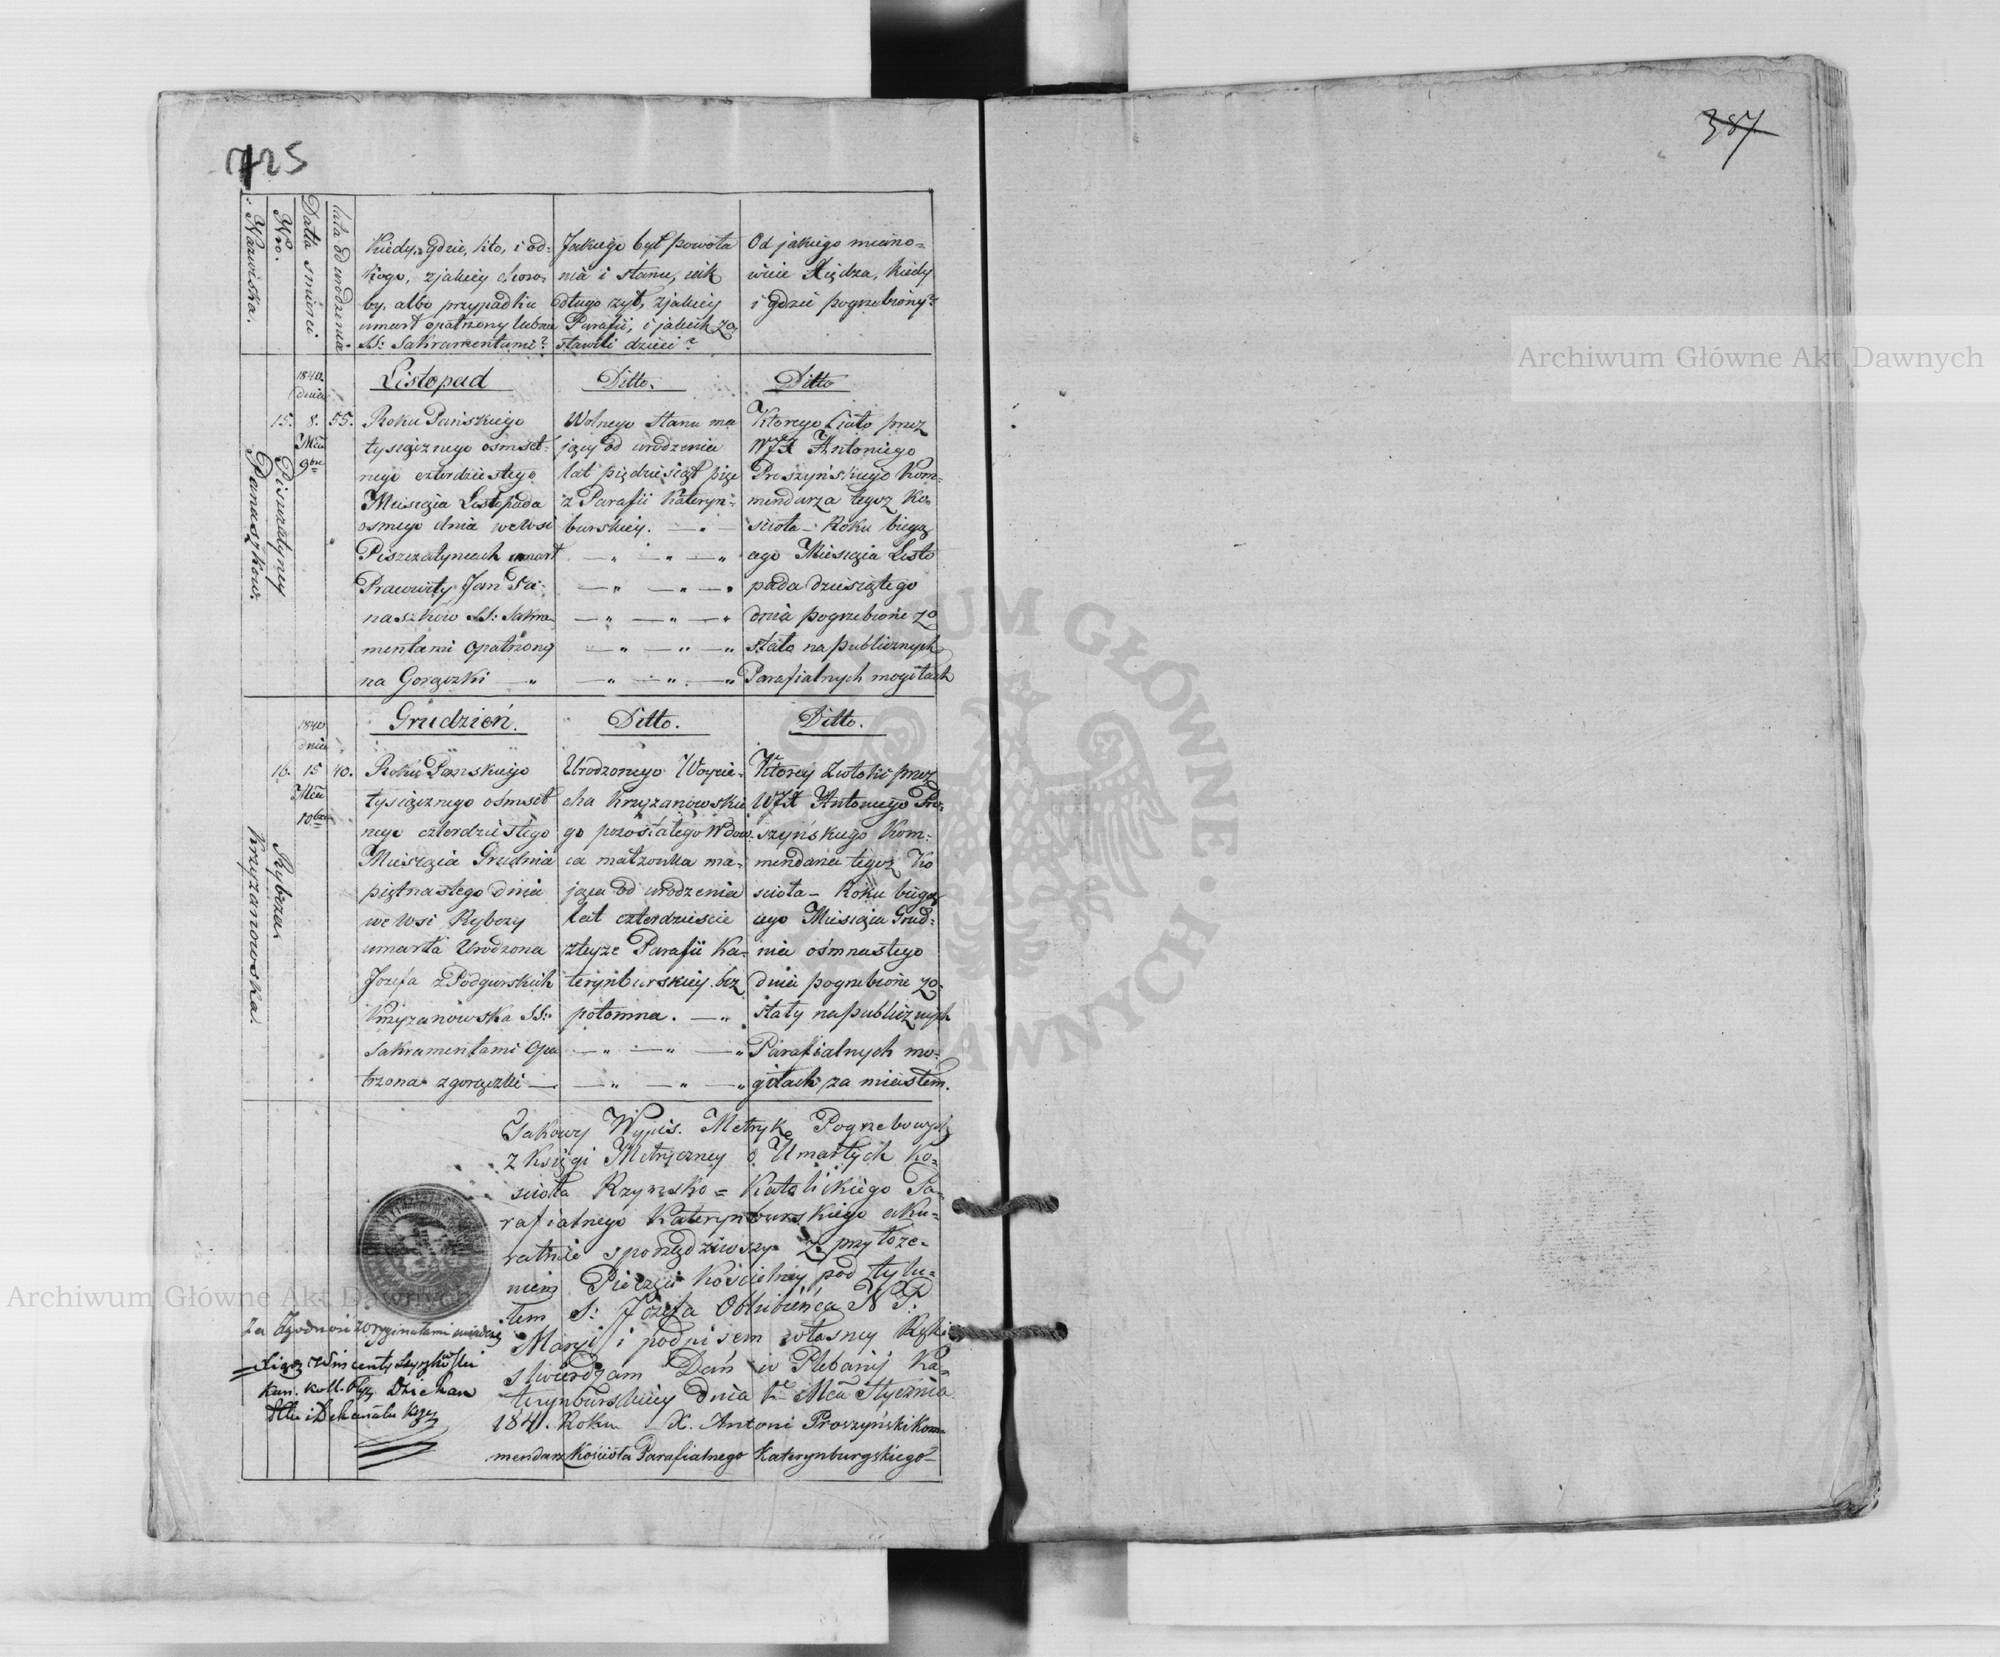 725
387
Nazwiska.
Nro.
Data śmierci.
lata od urodzenia.
Kiedy, gdzie, kto, i od-
kogo, z jakiey choro-
by, albo przypadku
umarł opatrzony lub nie
SS: Sakramentami?
Jakiego był powoła
nia i stanu, wik
długo żył, z jakiey
Parafii, i jakich zo
stawili dzieci?
Od jakiego miano-
wicie Xiędza, kiedy
i gdzie pogrzebiony?
1840
dnia
Listopad
Ditto.
Ditto
Piszczatyńcy
Panaszków.
15.
8.
Mca
9bra
55.
Roku Pańskiego
tysiącznego ośmset-
nego czterdziestego
Miesiąca Listopada
osmego dnia we Wsi
Piszczatyńcach umarł
Pracowity Jan Pa-
naszków SS: Sakra
mentami Opatrzony
na Gorączki
Wolnego stanu ma
jący od urodzenia
lat pięćdziesiąt pięć
z Parafii Kateryn-
burskiey.
Którego Ciało przez
WJX Antoniego
Proszyńskiego Kom-
mendarza tegoż Ko
ścioła - Roku bieżą
cego Miesiąca Listo
pada dziesiątego
dnia pogrzebione zo
stało na publicznych
Parafialnych mogiłach
1840
dnia
Grudzień.
Ditto.
Ditto.
Rybcza
Krzyżanowska.
16.
15
Mca
10bra
40.
Roku Pańskiego
tysiącznego ośmset
nego czterdziestego
Miesiąca Grudnia
piętnastego dnia
we Wsi Rybczy
umarła Urodzona
Józefa z Podgurskich
Krzyżanowska SS:
Sakramentami Opa
trzona z gorączki
Urodzonego Woycie-
cha Krzyżanowskie
go pozostałego Wdow
ca małżonka ma-
jąca od urodzenia
lat czterdzieście
z teyże Parafii Ka-
terynburskiey. bez
potomna.
Którey Zwłoki przez
WJX Antoniego Pro-
szyńskiego Kom-
mendarza tegoż Ko
ścioła - Roku bieżą
cego Miesiąca Grud-
nia ośmnastego
dnia pogrzebione zo-
stały na publicznych
Parafialnych mo-
giłach za miastem.
Takowy Wypis. Metryk Pogrzebowych
z Księgi Metryczney o Umarłych Ko-
ścioła Rzymsko = Katolickiego Pa-
rafialnego Katerynburskiego aku-
ratnie sporządziwszy z przyłoże-
niem Pieczęci Kościelney pod tytu-
łem S: Józefa Oblubieńca N. P.
Maryi i podpisem własney Ręki
stwierdzam Dań w Plebanij Ka-
terynburskiey dnia 1e Mca Stycznia
1841. Roku X. Antoni Proszyński Kom-
mendarz Kościoła Parafialnego Katerynburgskiego
Za Zgodność z oryginałami świadczę
Xiądz Wincenty
Kan. Koll. Dziekan
Archiwum Główne Akt Dawnych
Archiwum Główne Akt Dawnych
ARCHIWUM GŁÓWNE AKT DAWNYCH